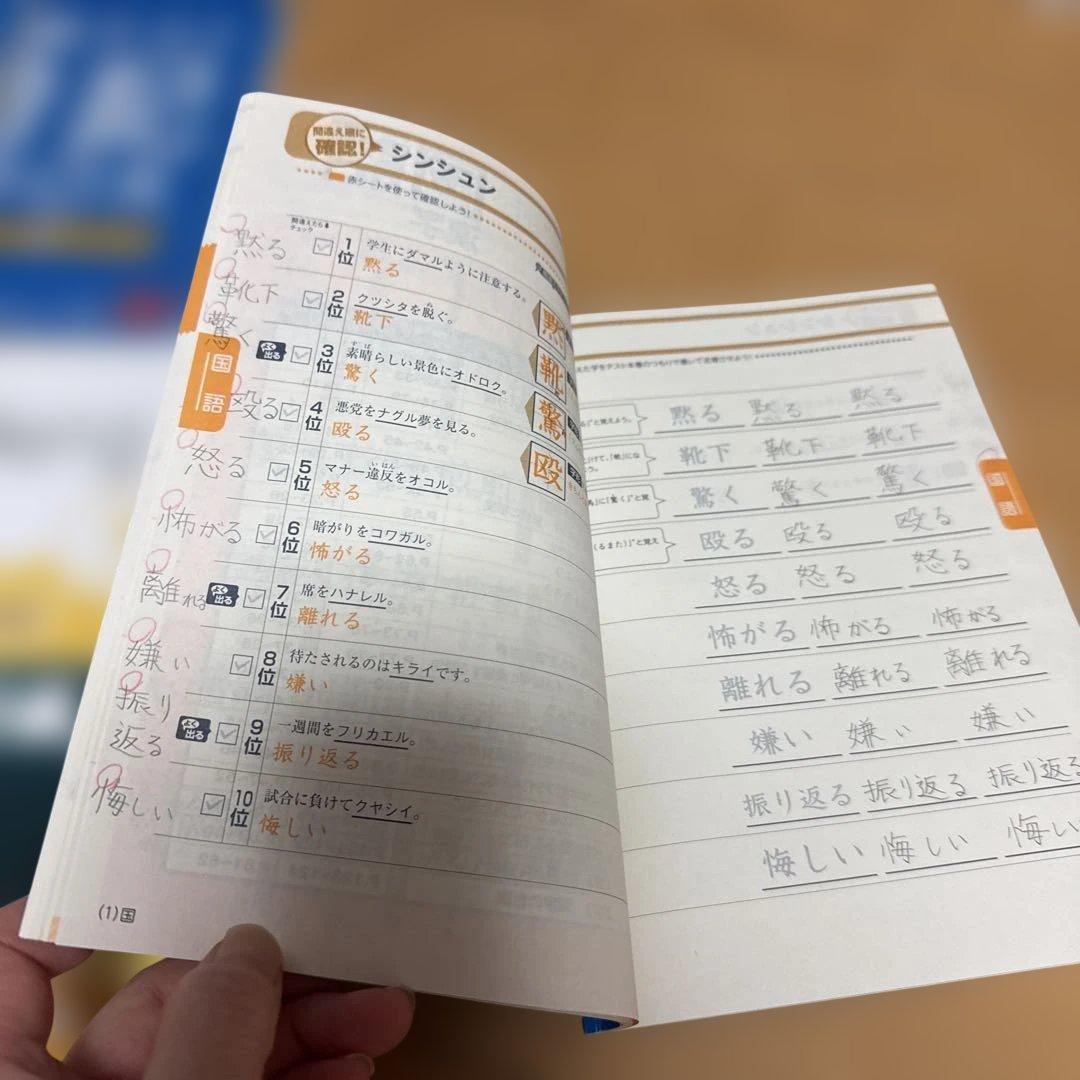 間違え順に
確認!
シンシュン
赤シートを使って確認しよう!
間違えたら
チェック
黙る
1位
学生にダマルように注意する。
黙る
黙
靴下
2位
クツシタを脱ぐ。
ぬ
靴下
靴
驚く
よく出る
3位
素晴らしい景色にオドロク。
すば
驚く
驚
国語
殴る
4位
悪党をナグル夢を見る。
殴る
殴
怒る
5位
マナー違反をオコル。
いはん
怒る
怖がる
6位
暗がりをコワガル。
怖がる
離れる
よく出る
7位
席をハナレル。
離れる
嫌い
8位
待たされるのはキライです。
嫌い
振り
返る
よく出る
9位
一週間をフリカエル。
振り返る
悔しい
10位
試合に負けてクヤシイ。
悔しい
(1)国
と覚えよう。
黙る 黙る 黙る
靴下 靴下 靴下
に「驚く」と覚
驚く 驚く 驚く
(るまた)」と覚え
殴る 殴る 殴る
怒る 怒る 怒る
怖がる 怖がる 怖がる
離れる 離れる 離れる
嫌い 嫌い 嫌い
振り返る 振り返る 振り返る
悔しい 悔しい 悔しい
国語